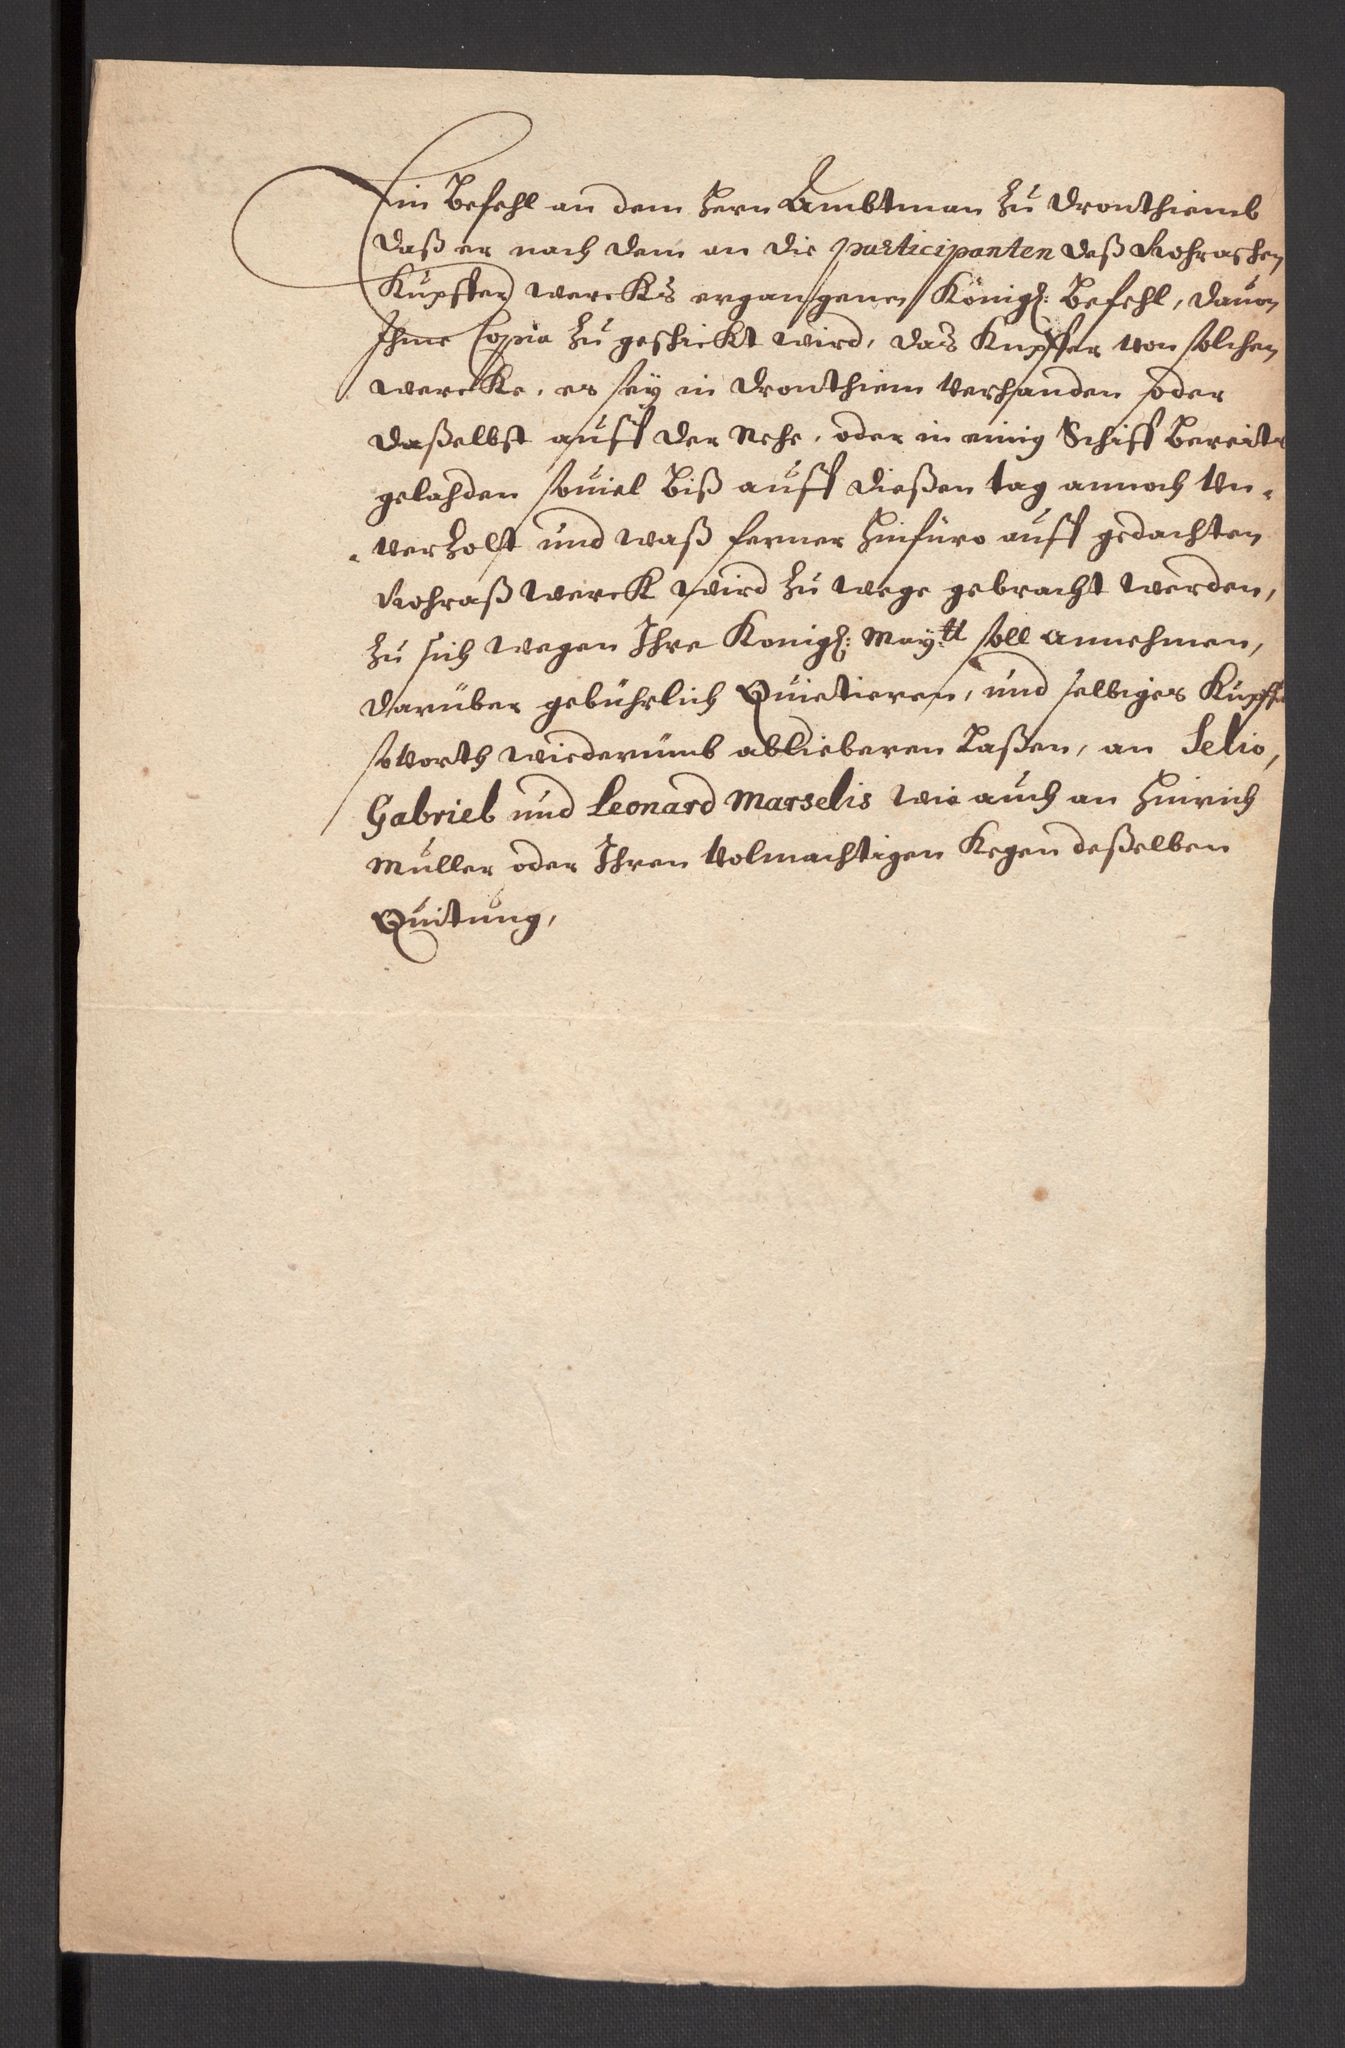 Ein Befehl an dem Hern Ambtman zu Dronthiemb
daß er nach dem an die participanten deß Rohraschen
Kupffer wercks ergangenen Königl: Befehl, dauon
Ihme Copia zu geschickt wird, das Kupffer von solchen
wercke, es sey in Dronthiem verhanden oder
daßelbst auff der Rehe, oder in einig Schiff bereits
gelahden souiel biß auff dießen tag annoch un-
-verholt und waß ferner hinfüro auff gedachten
Rohraß werck wird zu wege gebracht werden,
zu sich wegen Ihre Konigl: Maytt soll annehmen,
darüber gebührlich Quietieren, und selbiges Kupffer
sovorth wiederumb ablieberen laßen, an Selio,
Gabriel und Leonard Marselis wie auch an Hinrich
Müller oder Ihren volmachtigen kegen deßelben
Quitung,